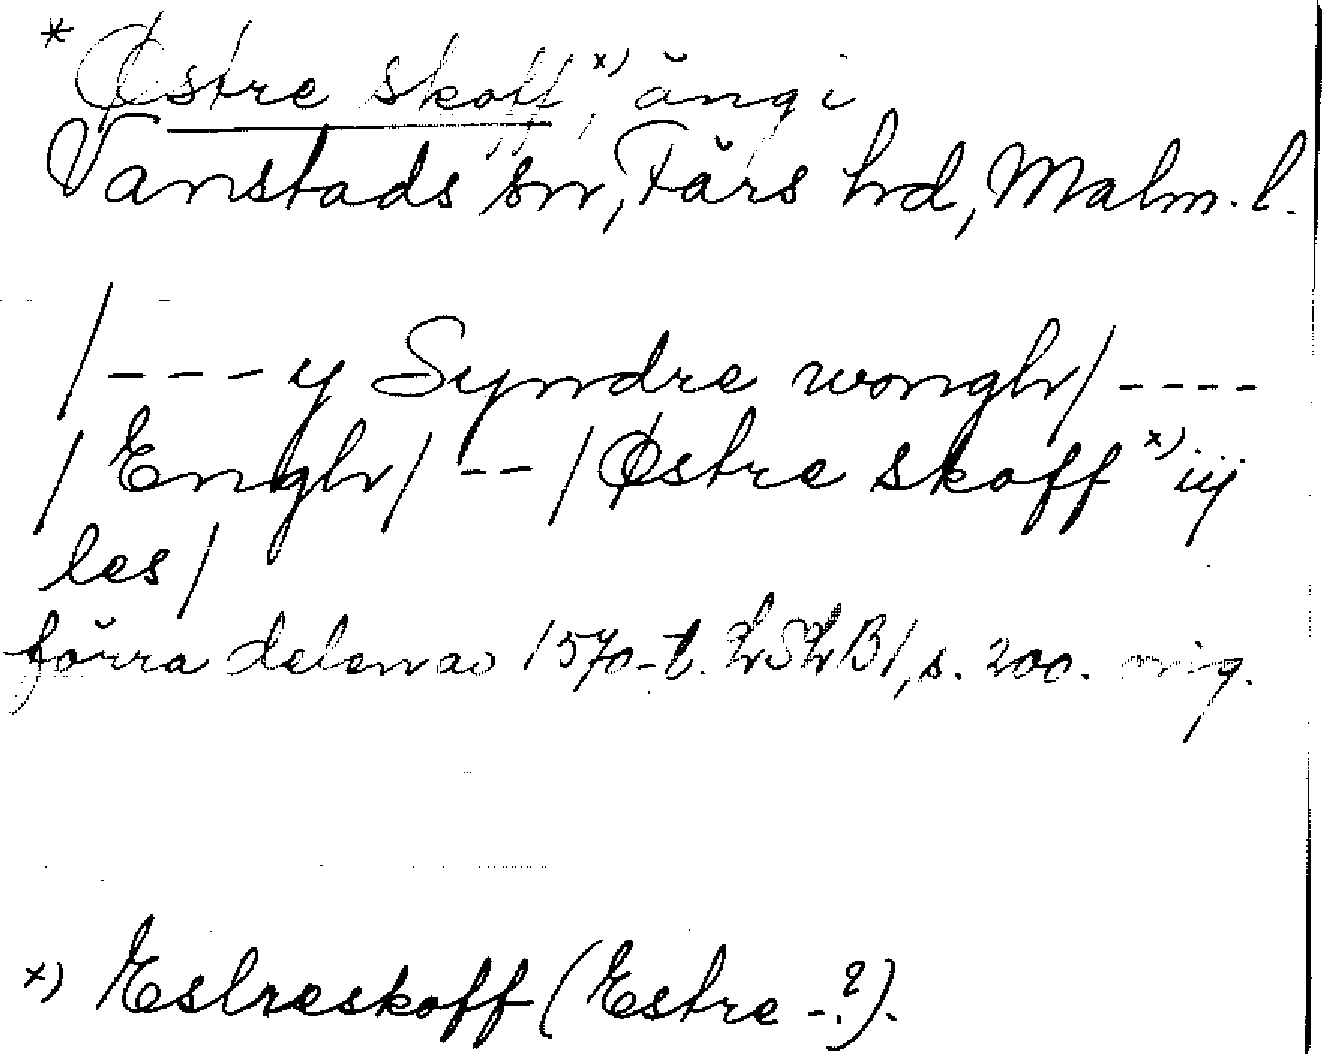 * Østre skoff, x) äng i
Vanstads sn, Färs hd, Malm. l.
/---y Syndre wongh/----
/Engh/--/Østre skoff x) iij
les/
förra delen av 1570-t. LSLB1, s. 200. orig.
x) Eslreskoff (Estre-?).